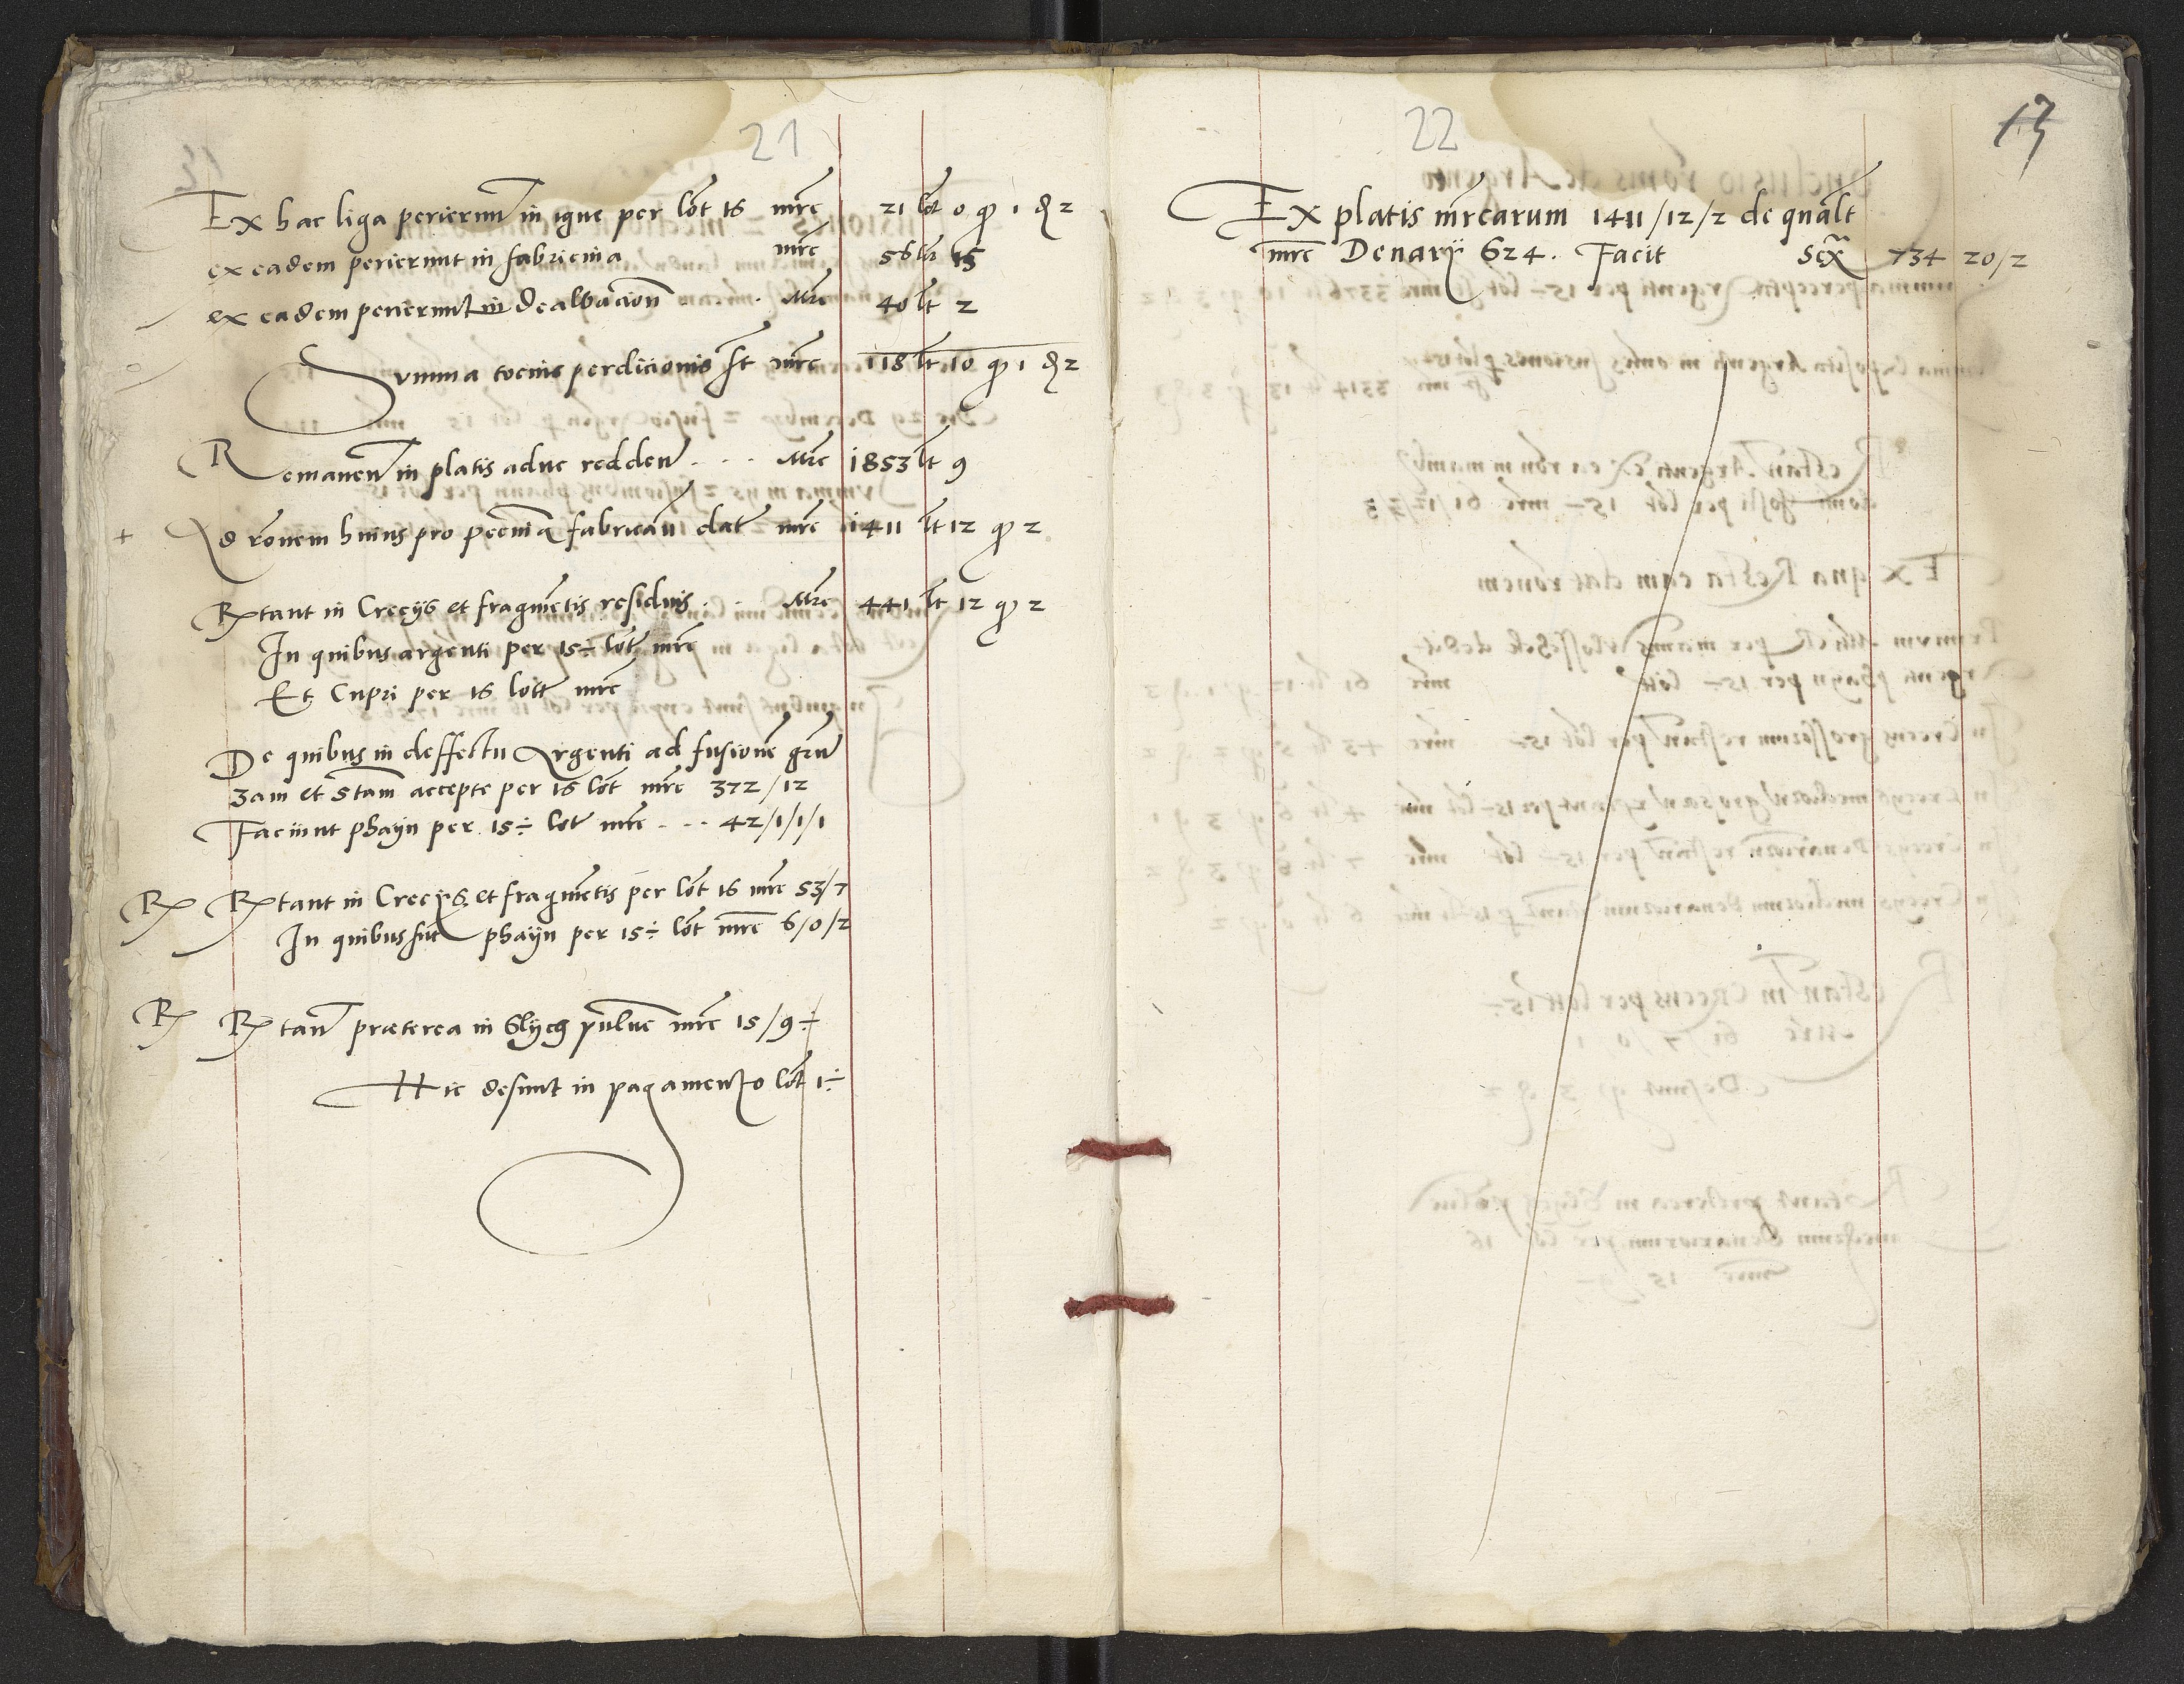 21
Ex hac liga perierunt in igne per lot 16 mrc 21 lot 0 q 1 ₰ 2
ex eadem perierunt in fabricina mrc 56 lt 15
ex eadem perierunt in dealbacion . Mrc 40 lt 2
Summa tocius perdicionis st mrc 118 lt 10 q 1 ₰ 2
Remanent in platis aduc redden . . . Mrc 1853 lt 9
+ Ad ronem huius pro pecunia fabrican dat mrc 1411 lt 12 q 2
Rtant in Crecijs et fragmetis residuis . . Mrc 441 lt 12 q 2
In quibus argenti per 15÷ lott mrc
Et Cupri per 16 lott mrc
De quibus in deffectu Argenti ad fusione
3am et 5tam accepte per 16 lot mrc 372/12
Faciunt phayn per 15÷ lot mrc . . . 42/1/1/1
R Rtant in Crecijs et fragmetis per lot 16 mrc 53/7
In quibus sut phayn per 15÷ lot mrc 6/0/2
R Rtant præterea in Slych puluе mrc 15/9÷
Hic desunt in pagamento lot 1÷
22
13
Ex platis mrcarum 1411/12/2 de qualt
mrc Denarij 624. Facit Sex 734 20/2